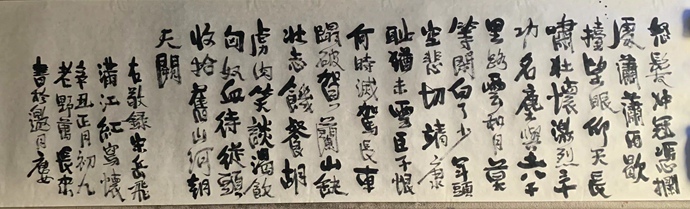 怒髮冲冠憑欄
處蕭蕭雨歇
擡望眼仰天長
嘯壯懷激烈三十
功名塵與土八千
里路雲和月莫
等閒白了少年頭
空悲切靖康
耻猶未雪臣子恨
何時滅駕長車
踏破賀蘭山缺
壯志飢餐胡
虜肉笑談渴飲
匈奴血待從頭
收拾舊山河朝
天闕
右敬錄宋岳飛
滿江紅寫懷
辛丑正月初九
老野蕭長來
書於邀月廔